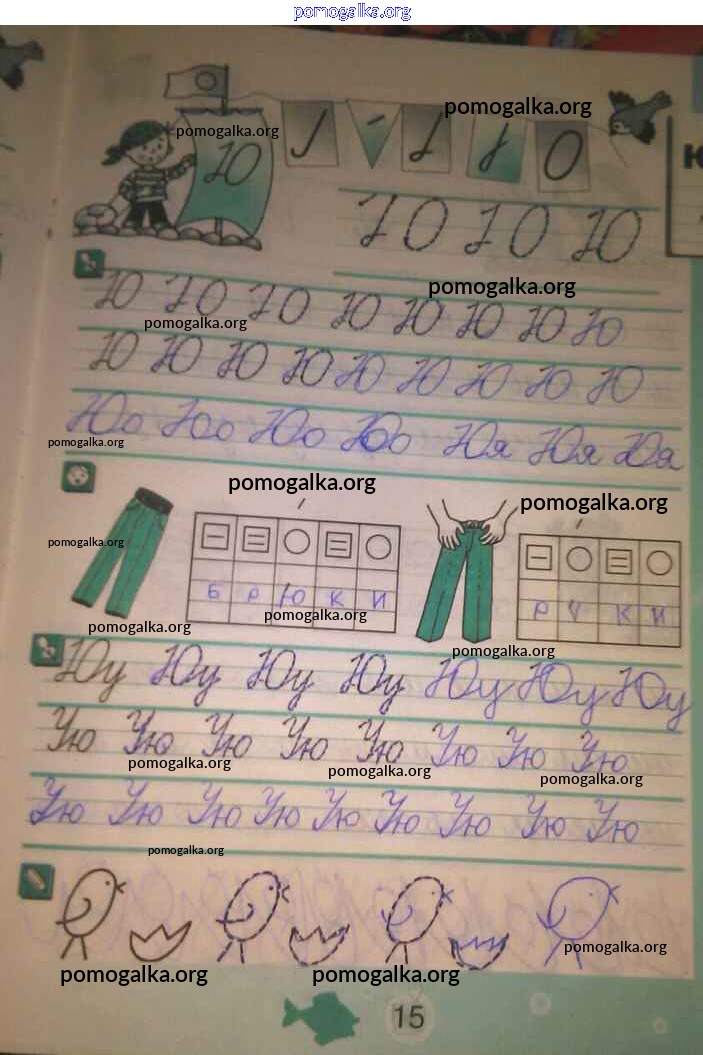 pomogalka.org
pomogalka.org
pomogalka.org
Ю Ю
Ю Ю Ю
pomogalka.org
Ю Ю Ю Ю Ю Ю Ю Ю
pomogalka.org
Ю Ю Ю Ю Ю Ю Ю Ю Ю
Юо Юо Юо Юо Юя Юя Юя
pomogalka.org
pomogalka.org
pomogalka.org
pomogalka.org
Б Р Ю К И
Р У К И
pomogalka.org
pomogalka.org
pomogalka.org
Юу Юу Юу Юу Юу Юу Юу
Ую Ую Ую Ую Ую Ую Ую Ую
pomogalka.org
pomogalka.org
pomogalka.org
Ую Ую Ую Ую Ую Ую Ую Ую Ую
pomogalka.org
pomogalka.org
pomogalka.org
pomogalka.org
15